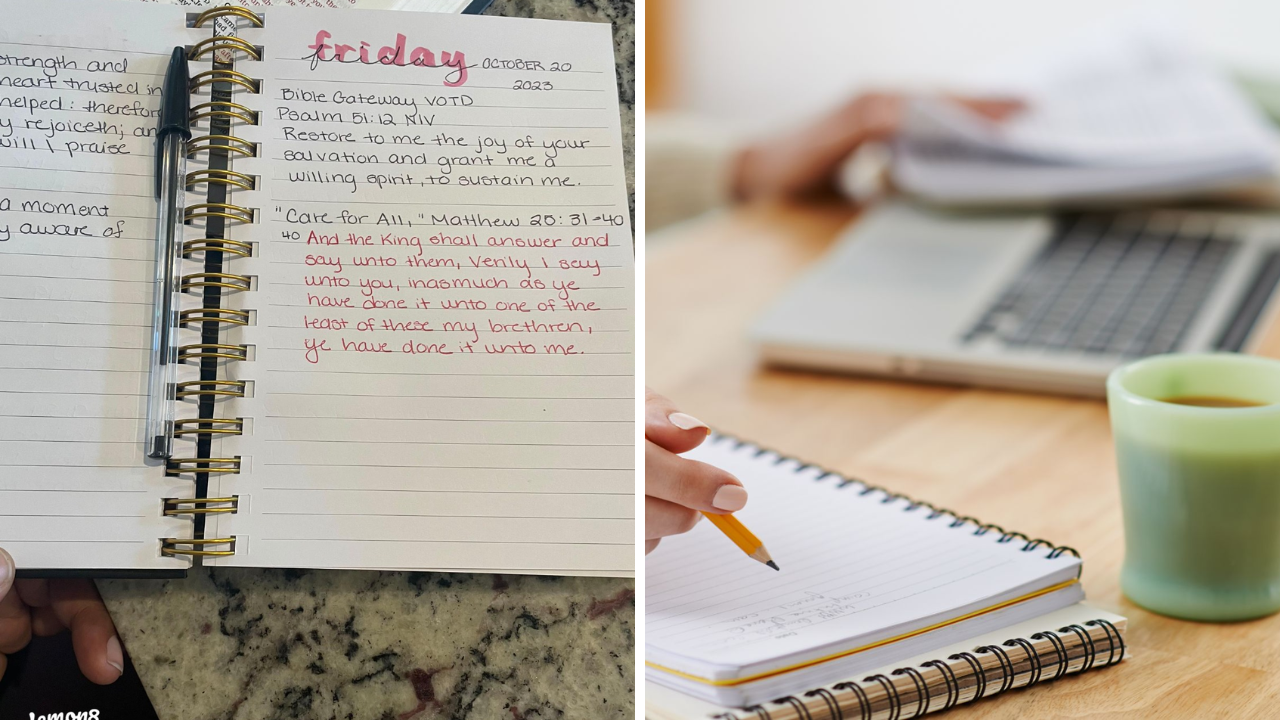 strength and
heart trusted in
helped: therefor
y rejoiceth; an
will I praise
a moment
y aware of
friday
friday OCTOBER 20
2023
Bible Gateway VOTD
Psalm 51:12 NIV
Restore to me the joy of your
salvation and grant me a
willing spirit, to sustain me.
"Care for All," Matthew 25:31-40
40 And the King shall answer and
say unto them, Verily I say
unto you, inasmuch as ye
have done it unto one of the
least of these my brethren,
ye have done it unto me.
lemon8